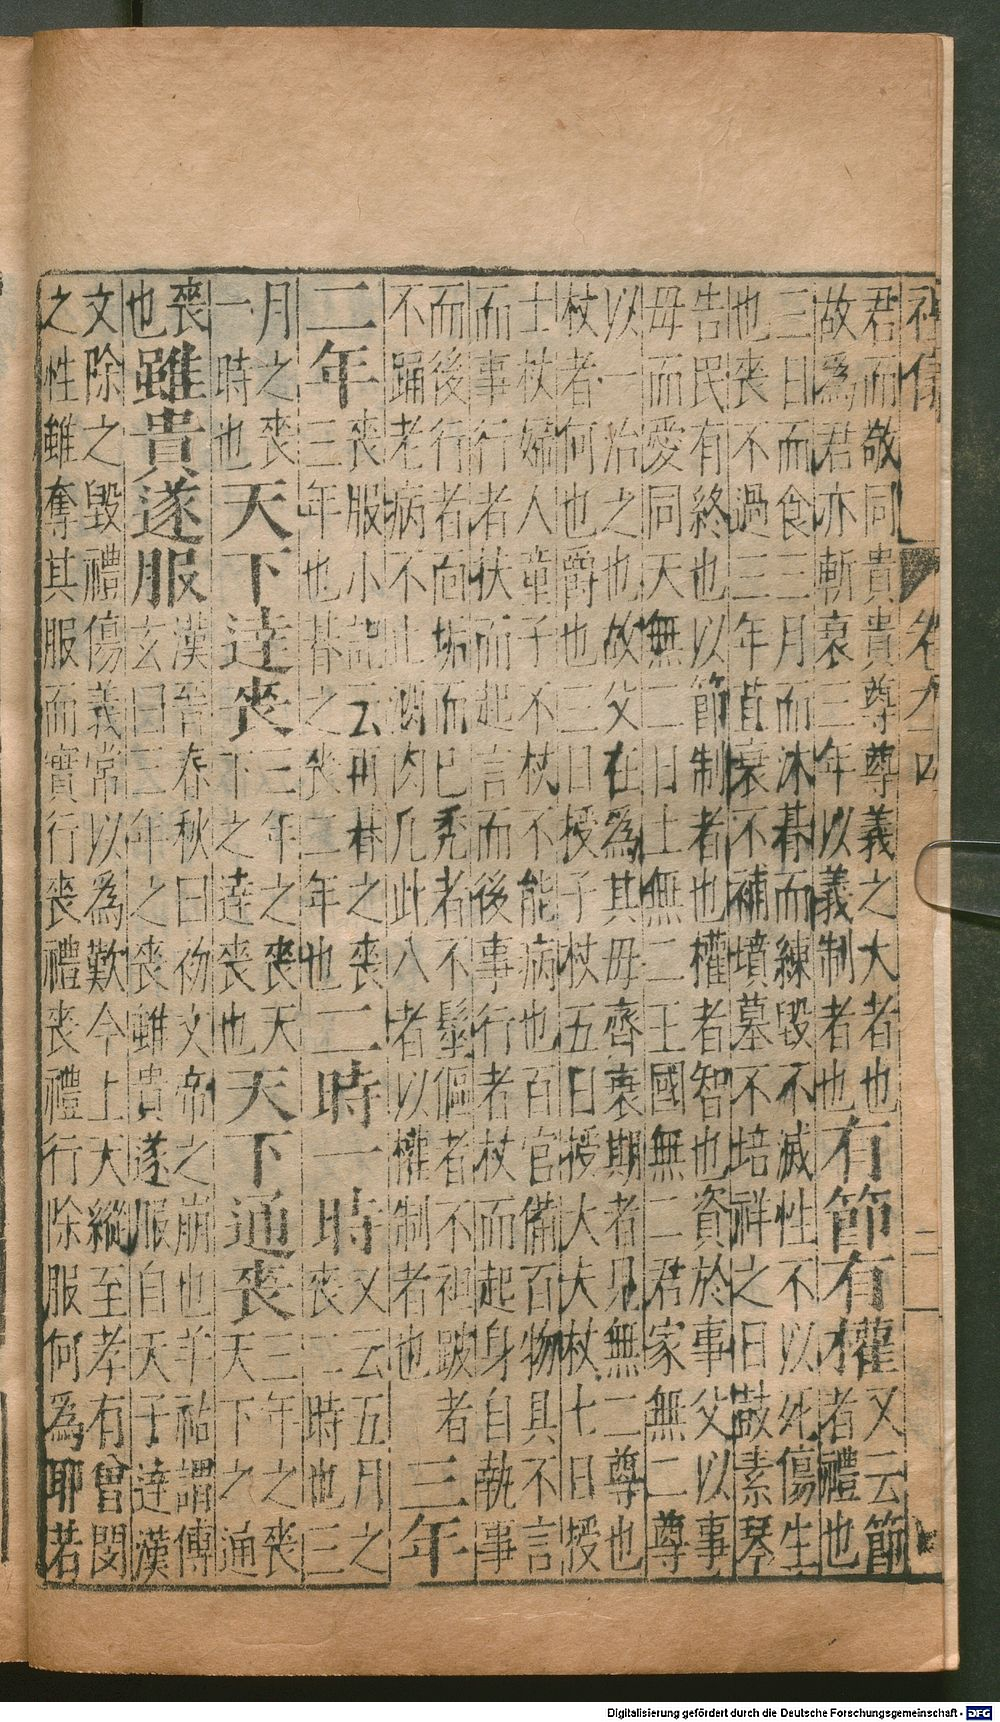 卷六十四 二
君而敬同貴貴尊尊義之大者也
故為君亦斬衰三年以義制者也
有節有權
又云節
者禮也
三日而食三月而沐朞而練毀不滅性不以死傷生
也喪不過三年苴衰不補墳墓不培祥之日鼓素琴
告民有終也以節制者也權者智也資於事父以事
母而愛同天無二日土無二王國無二君家無二尊
以一治之也故父在為其母齊衰期者見無二尊也
杖者何也爵也三日授子杖五日授大大杖七日授
士杖婦人童子不杖不能病也百官備百物具不言
而事行者扶而起言而後事行者杖而起身自執事
而後行者面垢而已禿者不髽傴者不袒跛者
不踊老病不止酒肉凡此八者以權制者也
三年
二年
喪服小記云再朞之喪
三年也朞之喪二年也
二時一時
又云五月之
喪二時也三
月之喪
一時也
天下達喪
三年之喪天
下之達喪也
天下通喪
三年之喪
天下之通
喪
也
雖貴遂服
漢晉春秋曰初文帝之崩也羊祜謂傅
玄曰三年之喪雖貴遂服自天子達漢
文除之毀禮傷義常以為歎今上天縱至孝有曾閔
之性雖奪其服而實行喪禮喪禮行除服何為耶若
Digitalisierung gefördert durch die Deutsche Forschungsgemeinschaft - DFG